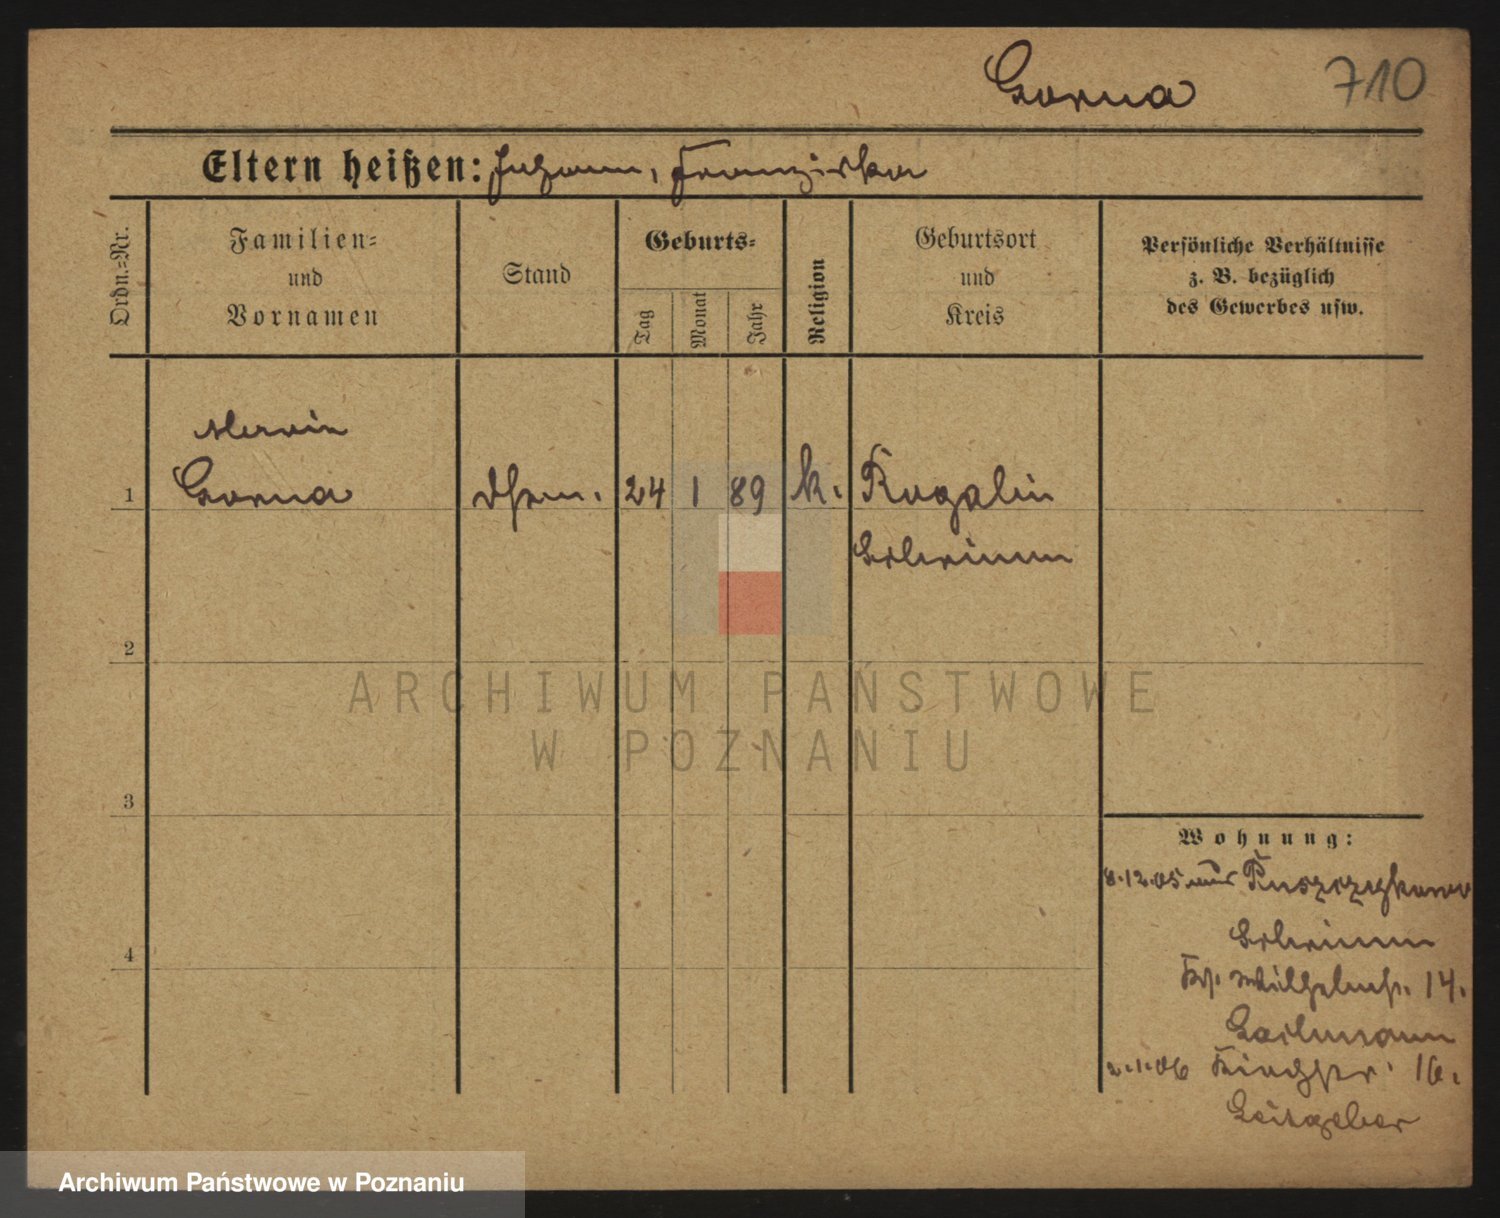 Gorna 710
Eltern heißen: Johann, Franziska
Ordn.-Nr.
Familien-
und
Vornamen
Stand
Geburts-
Tag
Monat
Jahr
Religion
Geburtsort
und
Kreis
Persönliche Verhältnisse
z. B. bezüglich
des Gewerbes usw.
Maria
1 Gorna 24 1 89 k. Rogalin
Schrimm
2
ARCHIWUM PAŃSTWOWE
W POZNANIU
3
Wohnung:
8.12.05 aus
Schrimm
Wilhelmst. 14.
4
2.1.06 16.
Leitgeber
Archiwum Państwowe w Poznaniu